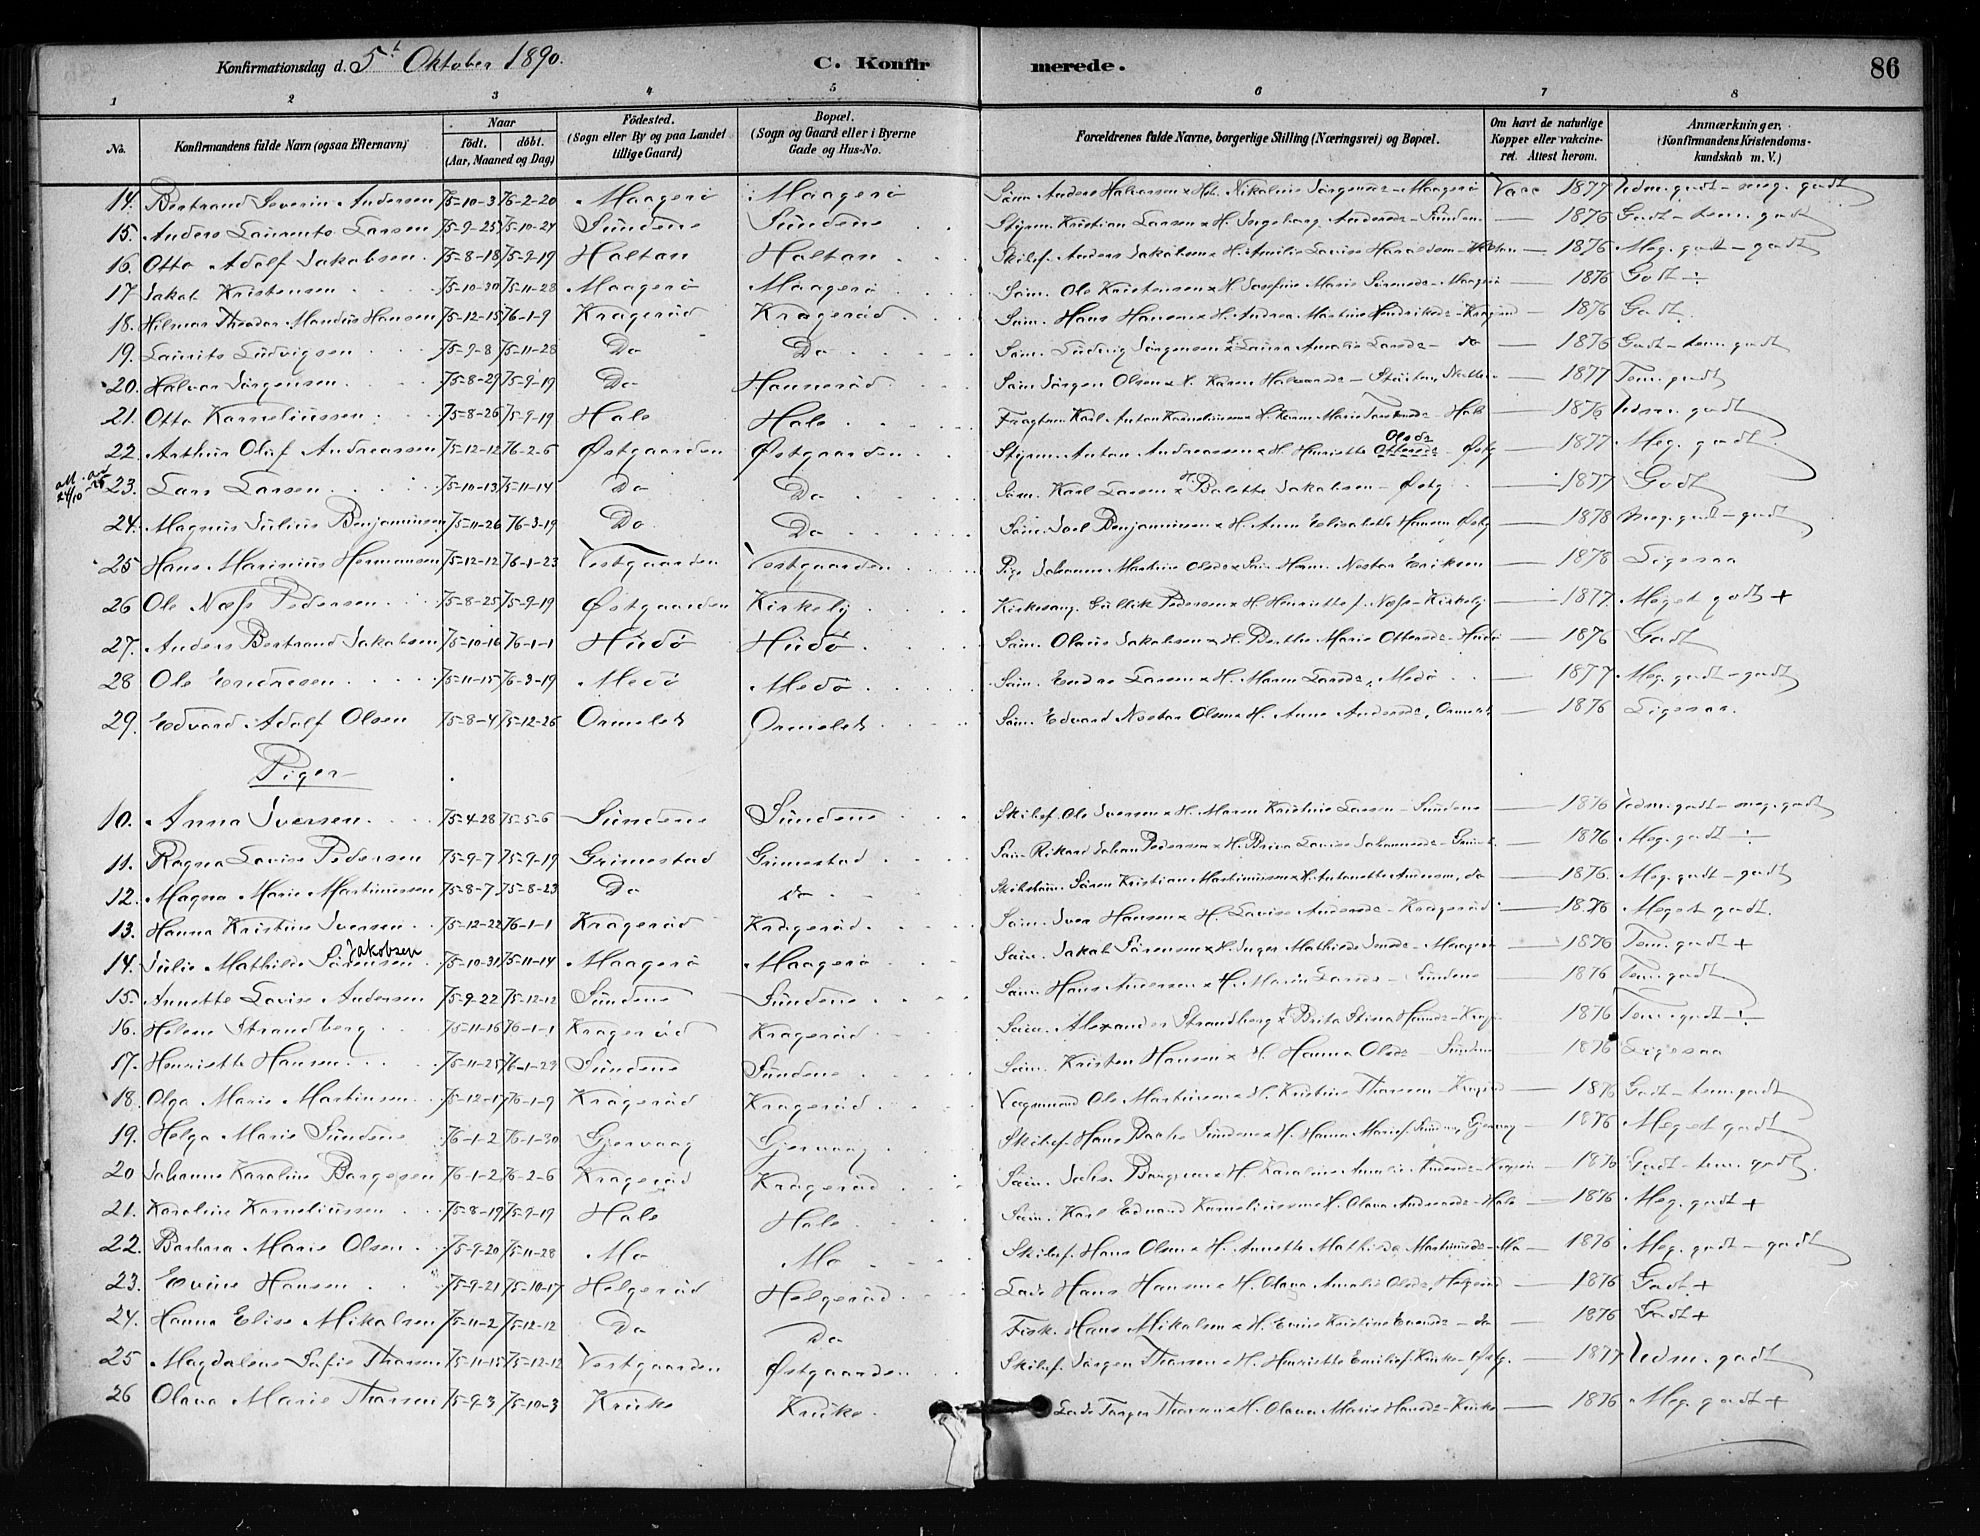 Konfirmationsdag d. 5t Oktober 1890. C. Konfirmerede. 86
1 2 3 4 5 6 7 8
No. Konfirmandens fulde Navn (ogsaa Efternavn) Naar födt. döbt. (Aar, Maaned og Dag) Födested. (Sogn eller By og paa Landet tillige Gaard) Bopæl. (Sogn og Gaard eller i Byerne Gade og Hus-No. Forældrenes fulde Navne, borgerlige Stilling (Næringsvei) og Bopæl. Om havt de naturlige Kopper eller vakcineret. Attest herom. Anmærkninger. (Konfirmandens Kristendomskundskab m. V.)
14. Bertrand Severin Andersen 75-10-3 76-2-20 Maagerö Maagerö Söm. Anders Halvorsen x H. Nikoline Jörgensdr - Maagerö Vacc 1877 Udm. godt - meg. godt
15. Anders Laurents Larsen 75-9-25 75-10-24 Sundene Sundene Styrm. Kristian Larsen x H. Ingeborg Andersdr - Sunden — 1876 Godt - tem. godt
16. Otto Adolf Jakobsen 75-8-18 75-9-19 Holtan Holtan Skibsf. Anders Jakobsen x H. Amilie Lovise Haraldsen - Holtan — 1876 Meg. godt - godt
17 Jakob Kristensen 75-10-30 75-11-28 Maagerö Maagerö Söm. Ole Kristensen x H. Josefine Marie Sörensdr - Maagerö 1876 Godt ÷
18. Hilmar Theodor Mandius Hansen 75-12-15 76-1-9 Kragerüd Kragerüd Söm. Hans Hansen x H. Andrea Martine Hendriksdr - Kragerüd — 1876 Godt.
19. Laurits Ludvigsen 75-9-8 75-11-28 Do Do Söm. Ludvig Jörgensen x H. Laura Amalie Larsdr - do — 1876 Godt - tem. godt
20. Halvor Jörgensen 75-8-29 75-9-19 Do Hannerüd Söm. Jörgen Olsen x H. Karen Halvorsdr — 1877 Tem. godt
21. Otto Korneliussen 75-8-26 75-9-19 Hole Hole Fragtm. Karl Anton Korneliussen x H. Karen Marie - Hole — 1876 Udm. godt
22. Arthur Oluf Andreassen 75-12-12 76-2-6 Østgaarden Østgaarden Styrm. Anton Andreassen x H. Henriette Ottersdr Olsdr - Østg — 1877 Meg. godt
23. Lars Larsen 75-10-13 75-11-14 Do Do Söm. Karl Larsen x H. Bolette Jakobsen - Østg — 1877 Godt
24. Magnus Julius Benjaminsen 75-11-26 76-3-19 Do Do Söm. Joel Benjaminsen x H. Anne Elisabeth Hansen Østg — 1878 Meg. godt - godt
25 Hans Marinius Hermansen 75-12-12 76-1-23 Vestgaarden Vestgaarden Pige Johanne Martine Olsdr x Söm Herm. Nestor Eriksen — 1878 Ligesaa
26 Ole Næss Pedersen 75-8-25 75-9-19 Østgaarden Kirkeby Kirkesang. Gullik Pedersen x H. Henriette f. Næss - Kirkeby — 1877. Meget godt +
27. Anders Bertrand Jakobsen 75-10-16 76-1-1 Hüdö Hüdö Söm. Olaus Jakobsen x H. Berthe Marie Ottersdr - Hüdö — 1876 Godt
28 Ole Endresen 75-11-15 76-3-19 Medö Medö Söm. Endre Larsen x H. Maren Larsdr, Medö — 1877 Meg. godt - godt
29. Edvard Adolf Olsen 75-8-4 75-12-26 Ormelet Ormelet Söm. Edvard Nestor Olsen x H. Anne Andersdr, Ormelet — 1876 Ligesaa.
Piger
10. Anna Iversen 75-4-28 75-5-6 Sundene Sundene Skibsf. Ole Iversen x H. Maren Kristine Larsen - Sundene — 1876 Udm. godt - meg. godt
11. Ragna Lovise Pedersen 75-9-7 75-9-19 Grimestad Grimestad Söm Rikard Johan Pedersen x H. Lovise Johannesdr - — 1876 Meg. godt ÷
12. Magna Marie Martinussen 75-8-7 75-8-23 Do do Sören Kristian Martinussen x H. Antonette, do — 1876. Meg. godt - godt
13. Hanna Kristine Iversen 75-12-22 76-1-1 Kragerüd Kragerüd Söm. Iver Hansen x H. Lovise Andersdr - Kragerüd — 1876 Meget godt.
14. Julie Mathilde Sörensen Jakobsen 75-10-31 75-11-14 Maagerö Maagerö Söm. Jakob Sörensen x H. Inger Mathilde - Maagerö — 1876 Tem. godt +
15. Annette Lovise Andersen 75-9-22 75-12-12 Sundene Sundene Söm. Hans Andersen x H. Maren Larsdr - Sundene 1876 Tem. godt
16. Helene Strandberg 75-11-16 76-1-1 Kragerüd Kragerüd Söm. Alexander Strandberg x Brita Stina - Krag 1876 Tem. godt ÷
17. Henriette Hansen 75-11-25 76-1-23 Sundene Sundene Söm. Kristen Hansen x H. Hanna Olsdr - Sundene — 1876 Ligesaa
18. Olga Marie Martinsen 75-12-17 76-1-9 Kragerüd Kragerüd Vognmand Ole Martinsen x H. Kristine Thorsen - — 1876 Godt - tem. godt
19. Helga Marie Sundene 76-1-2 76-1-30 Gjervaag Gjervaag Skibsf. Hans Bache Sundene x H. Hanna Marie — 1876 Meget godt
20 Johanne Karoline Borgesen 76-1-2 76-2-6 Kragerüd Kragerüd Söm. Borgesen x H. Karoline Amalie — 1876 Godt - tem. godt.
21. Karoline Korneliussen 75-8-19 75-9-19 Hole Hole Söm. Karl Edvard Korneliussen x H. Olava Andersdr - Hole — 1876 Meg. godt +
22. Barbara Marie Olsen 75-9-20 75-11-28 Mo Mo Skibsf. Hans Olsen x H. Annette Mathilde Martinusdr - Mo — 1876 Meg. godt - godt
23. Evine Hansen 75-9-21 75-10-17 Helgerüd Helgerüd Lods Hans Hansen x H. Olava Amalie Olsdr, Helgerüd — 1876 Godt. +
24. Hanna Elise Mikalsen 75-11-2 75-12-12 Do Do Fisk. Hans Mikalsen x H. Evine Kristine - do — 1876 Godt +
25 Magdalene Sofie Thorsen 75-11-15 75-12-12 Vestgaarden Østgaarden Skibsf. Jörgen Thorsen x H. Henriette Emilie f. Kruke - Østg. — 1877 Udm. godt
26 Olava Marie Thorsen 75-9-3 75-10-3 Kruke Kruke. Lods Torger Thorsen x H. Olava Marie Hansdr - Kruke — 1876 Meg. godt +